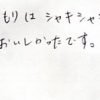 もりは シャキシャ
おいしかったです。